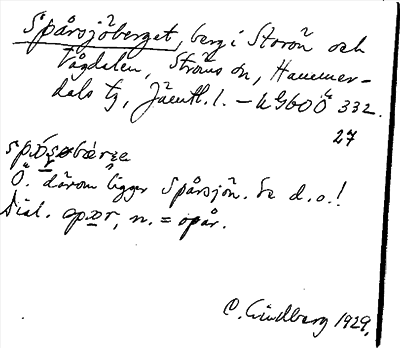 Spårsjöberget, berg i Storön och
Vågdalen, Ströms sn, Hammer-
dals tg, Jämtl. l. – 332.
27
Ö. därom ligger Spårsjön. Se d. o.!
Dial. n. = spår.
O. Lindberg 1929.